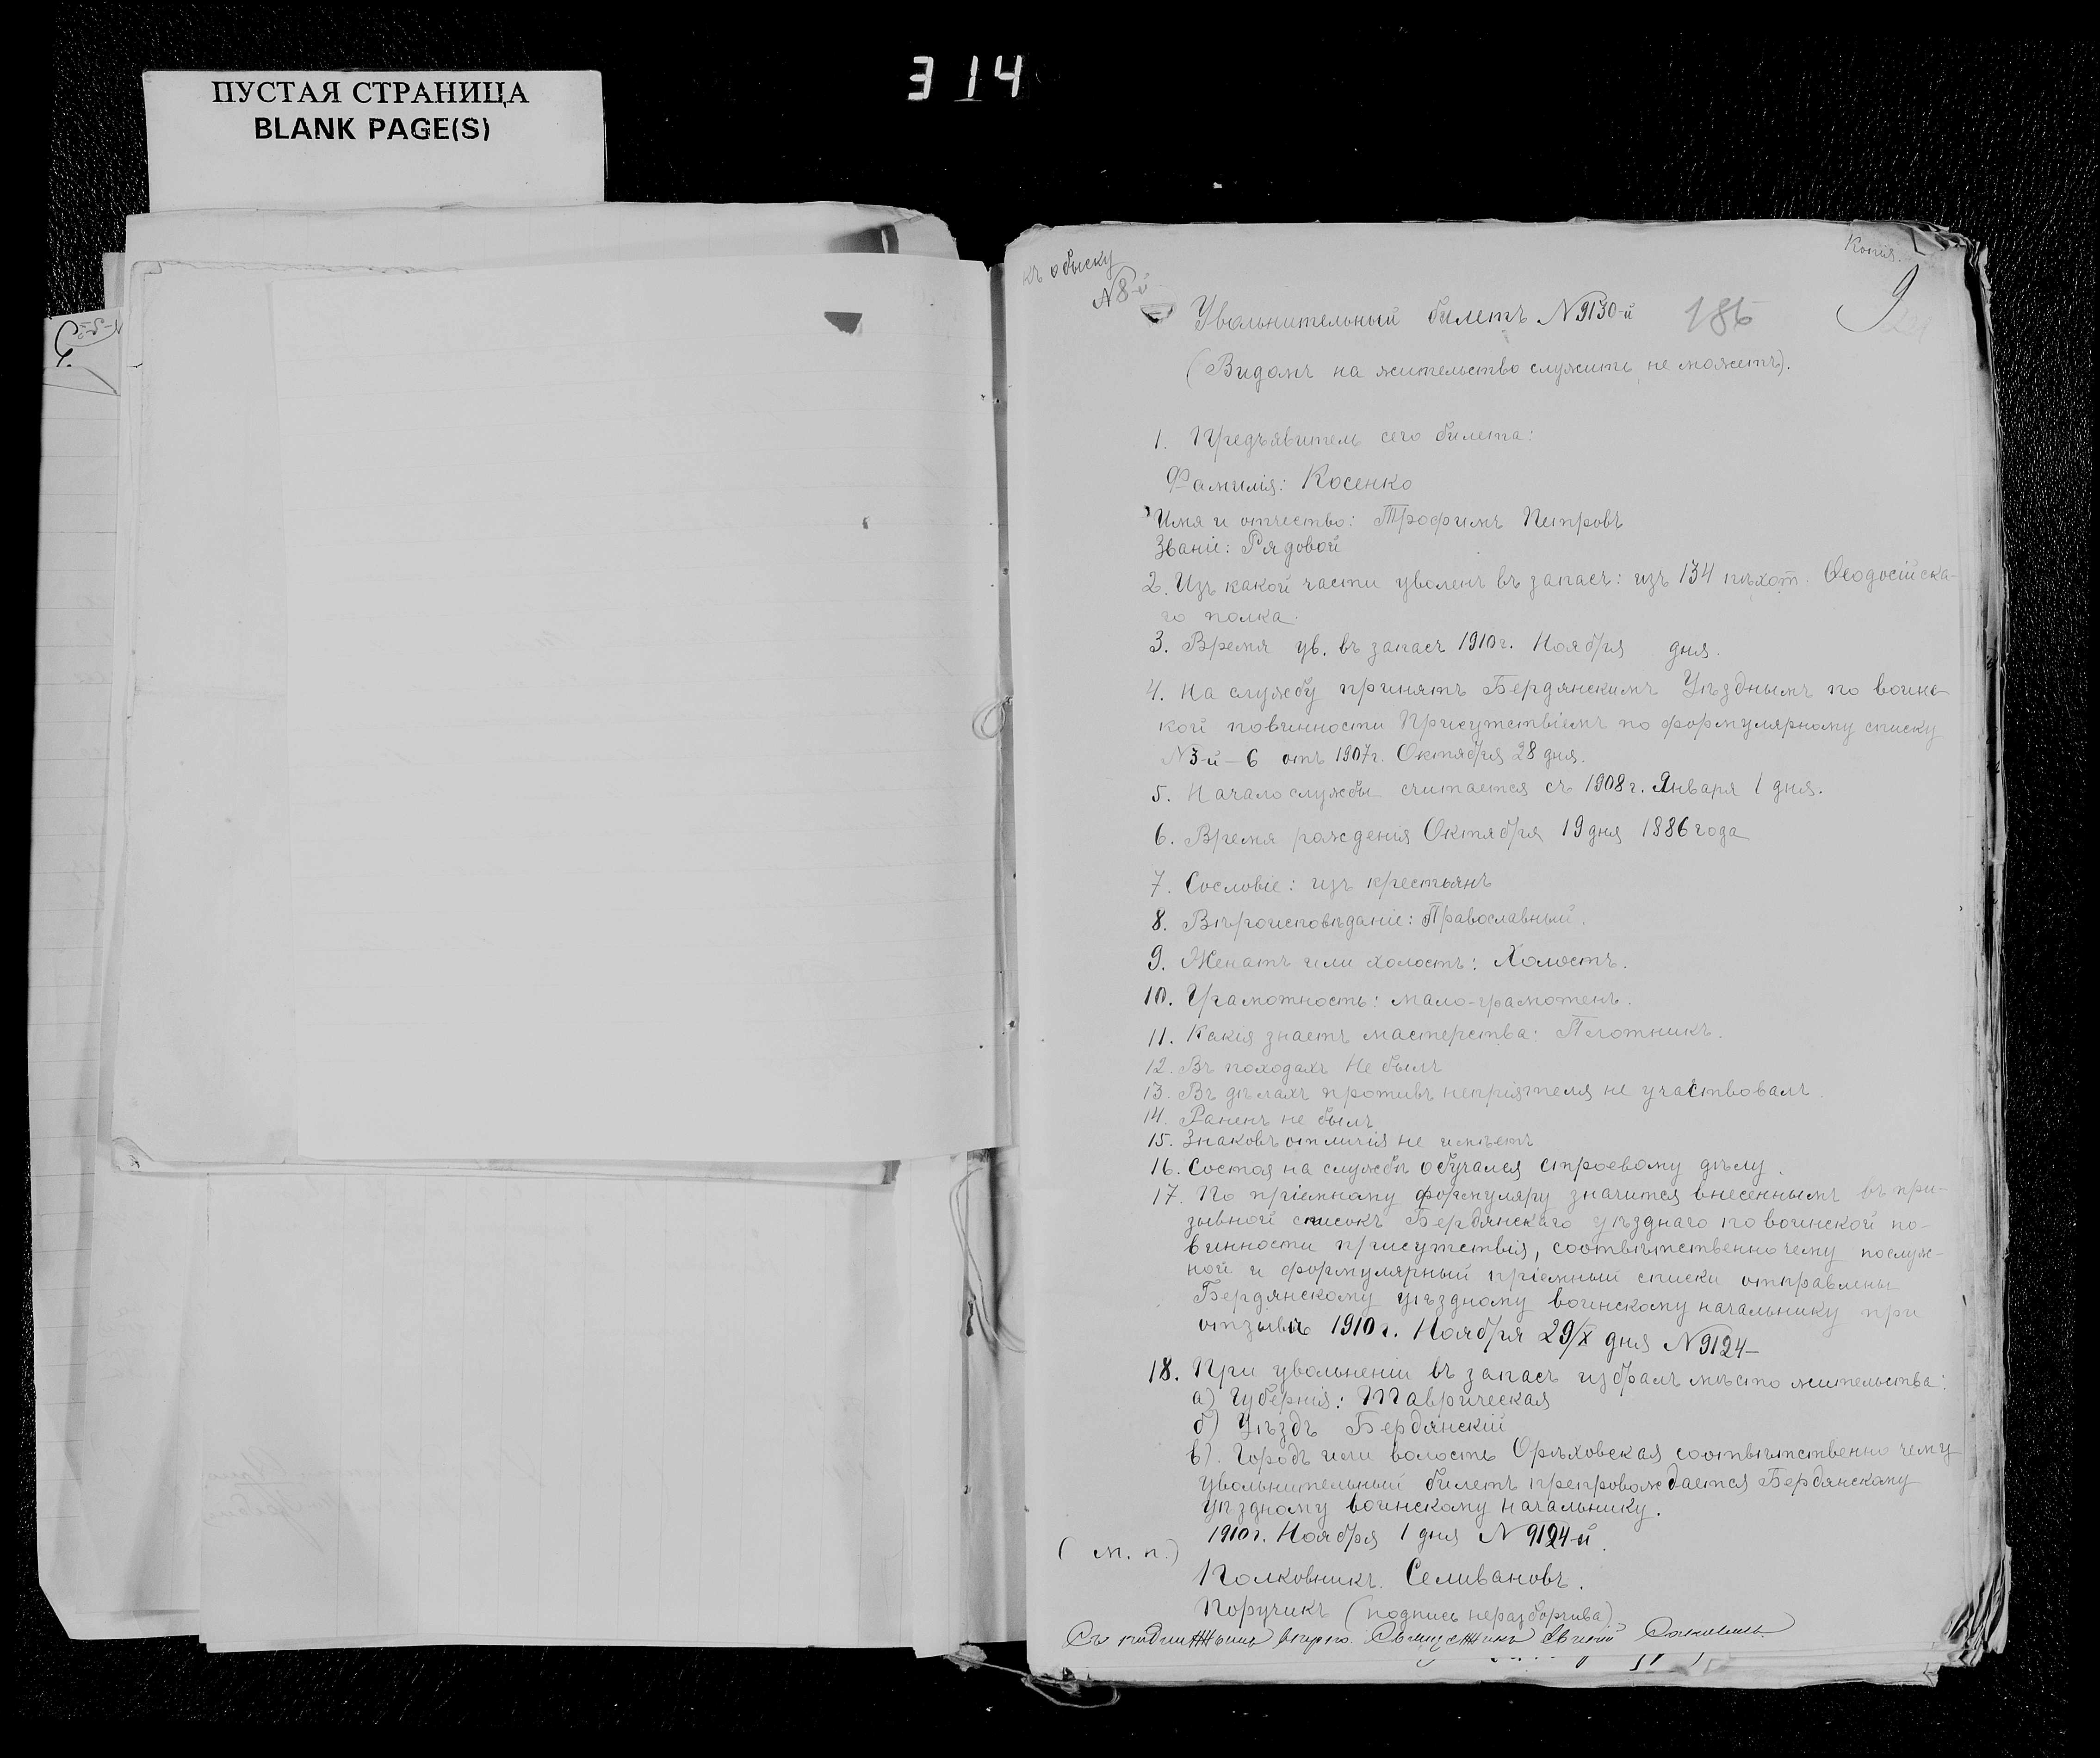 314
ПУСТАЯ СТРАНИЦА
BLANK PAGE(S)
Копія.
къ обыску
№8-й
9
Увольнительный билетъ №9130-й 186
(Видомъ на жительство служить не можетъ).
1. Предъявитель сего билета:
Фамилія: Косенко
Имя и отчество: Трофимъ Петровъ
Званіе: Рядовой
2. Изъ какой части уволенъ въ запасъ: изъ 134 пѣхот. Ѳеодосійска-
го полка.
3. Время ув. въ запасъ 1910 г. Ноября дня.
4. На службу принятъ Бердянскимъ Уѣзднымъ по воинс-
кой повинности Присутствіемъ по формулярному списку
№3-й-6 отъ 1907 г. Октября 28 дня.
5. Начало службы считается съ 1908 г. Января 1 дня.
6. Время рожденія Октября 19 дня 1886 года
7. Сословіе: изъ крестьянъ
8. Вѣроисповѣданіе: Православный.
9. Женатъ или холостъ: Холостъ.
10. Грамотность: мало-грамотенъ.
11. Какія знаетъ мастерства: Плотникъ.
12. Въ походахъ Не былъ
13. Въ дѣлахъ противъ непріятеля не участвовалъ.
14. Раненъ не былъ
15. Знаковъ отличія не имѣетъ
16. Состоя на службѣ обучался строевому дѣлу.
17. По пріемному формуляру значится внесеннымъ въ при-
зывной списокъ Бердянскаго уѣзднаго по воинской по-
винности присутствія, соотвѣтственно чему послуж-
ной и формулярный пріемный списки отправлены
Бердянскому уѣздному воинскому начальнику при
отзывѣ 1910 г. Ноября 29/X дня №9124-
18. При увольненіи въ запасъ избралъ мѣсто жительства:
а) Губернія: Таврическая
б) Уѣздъ Бердянскій
в). Городъ или волость Орѣховская соотвѣтственно чему
увольнительный билетъ препровождается Бердянскому
уѣздному воинскому начальнику.
1910 г. Ноября 1 дня №9124-й.
(м. п.)
Полковникъ Селивановъ.
Поручикъ (подпись неразборчива)
Съ подлиннымъ вѣрно. Священникъ